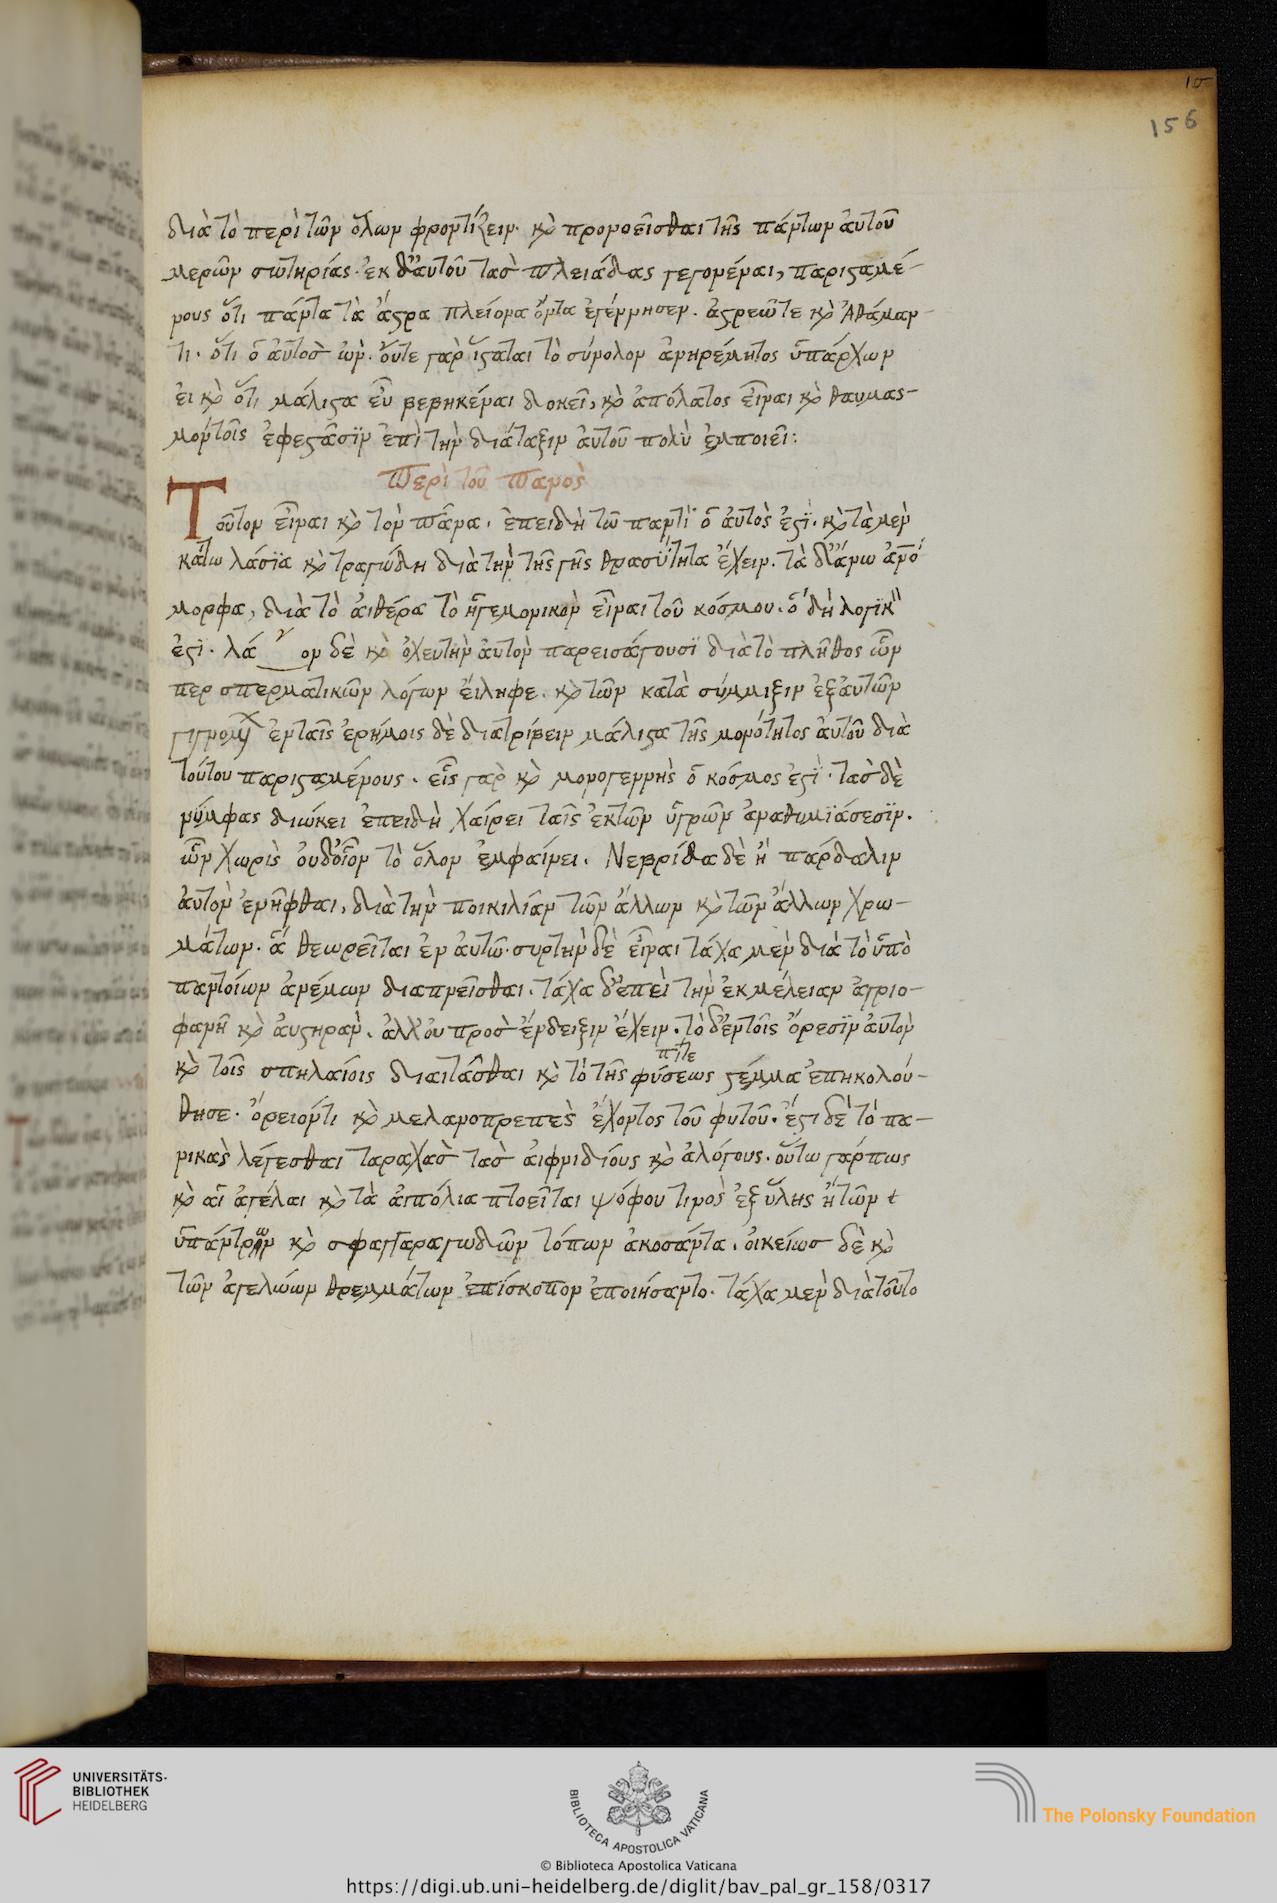 15
156
διὰ τὸ περὶ τῶν ὅλων φροντίζειν. κỳ προνοεῖσθαι τῆς πάντων ἀυτοῦ
μερῶν σωτηρίας. ἐκ δ'ἀυτοῦ τασ πλειάδας γεγονέναι, παριςαμέ-
νους ὅτι πάντα τὰ ἄςρα πλείονα ὄντα ἐγέννησεν. ἀςρεῶτε κỳ Ἀθάμαν-
τι. ὅτι ὁ ἀυτοσ ὠν. ὄυτε γαρ ἵςαται τὸ σύνολον ἀνηρέμητος ὑπάρχων
ἐι κỳ ὅτι μάλιςα ἐῦ βεβηκέναι δοκεῖ, κỳ ἀπόλατος εἶναι κỳ θαυμας-
μόντοῖς ἐφεςᾶσϊν ἐπὶ τὴν διάταξιν ἀυτοῦ πολὺ ἐμποιεῖ:
Περὶ τοῦ Πανος
Τοῦτον εἶναι κỳ τον πᾶνα. ἐπειδὴ τῶ παντὶ ὁ ἀυτὸς ἐςϊ. κỳ τὰ μεν
κάτω λάσϊα κỳ τραγώδη διὰ τὴν τῆς γῆς θρασύτητα ἔχειν. τὰ δ'ἄνω ἀνό
μορφα, διὰ τὸ ἀιθέρα τὸ ἡγεμονικὸν εἶναι τοῦ κόσμου. ὅ δὴ λογϊκ
ἐςϊ. λά γ ον δὲ κỳ ὀχευτὴν ἀυτον παρεισάγουσϊ διὰ τὸ πλῆθος ὧν
περ σπερματικῶν λόγων ἐίληφε. κỳ τῶν κατὰ σύμμιξιν ἐξ ἀυτῶν
ἐνταῖς ἐρήμοις δὲ διατρίβειν μάλιςα τῆς μονότητος ἀυτοῦ διὰ
τούτου παριςαμένους. εἷς γαρ κỳ μονογεννὴς ὁ κόσμος ἐςϊ. τασ δὲ
νύμφας διώκει ἐπειδὴ χαίρει ταῖς ἐκτῶν ὑγρῶν ἀναθυμϊάσεσϊν.
ὧν χωρὶς ὀυδ'οῖον τὸ ὅλον ἐμφαίνει. Νεβρίδα δὲ ἢ πάρδαλιν
ἀυτον ἐνῆφθαι, διὰ τὴν ποικιλίαν τῶν ἄλλων κỳ τῶν ἄλλων χρω-
μάτων. ἃ θεωρεῖται ἐν ἀυτῶ. συρτὴν δὲ εἶναι τάχα μεν διὰ τὸ ὑπὸ
παντοίων ἀνέμων διαπνεῖσθαι. τάχα δ'ἐπεὶ τὴν ἐκμέλειαν ἀγριο-
φανῆ κỳ ἀυςηραν. ἀλλ'ὀυ προσ ἔνδειξιν ἔχειν. τὸ δ'ἐντοῖς ὄρεσϊν ἀυτον
κỳ τοῖς σπηλαίοις διαιτᾶσθαι κỳ τὸ τῆς φύσεως ςέμμα ἐπηκολού-
θησε. ὄρειοντι κỳ μελανοπρεπες ἔχοντος τοῦ φυτοῦ. ἔςι δὲ τὸ πα-
νικας λέγεσθαι ταραχασ τασ ἀιφνιδίους κỳ ἀλόγους. οὕτω γάρπως
κỳ αἱ ἀγέλαι κỳ τὰ ἀιπόλια πτοεῖται ψόφου τινος ἐξ ὕλης ἢ τῶν
ὑπάντρων κỳ σφαγγαραγωδῶν τόπων ἀκοσάντα. ὀικείωσ δὲ κỳ
τῶν ἀγελώιων θρεμμάτων ἐπίσκοπον ἐποιήσαντο. τάχα μεν διὰ τοῦτο
UNIVERSITÄTS-
BIBLIOTHEK
HEIDELBERG
BIBLIOTECA APOSTOLICA VATICANA
© Biblioteca Apostolica Vaticana
The Polonsky Foundation
https://digi.ub.uni-heidelberg.de/diglit/bav_pal_gr_158/0317